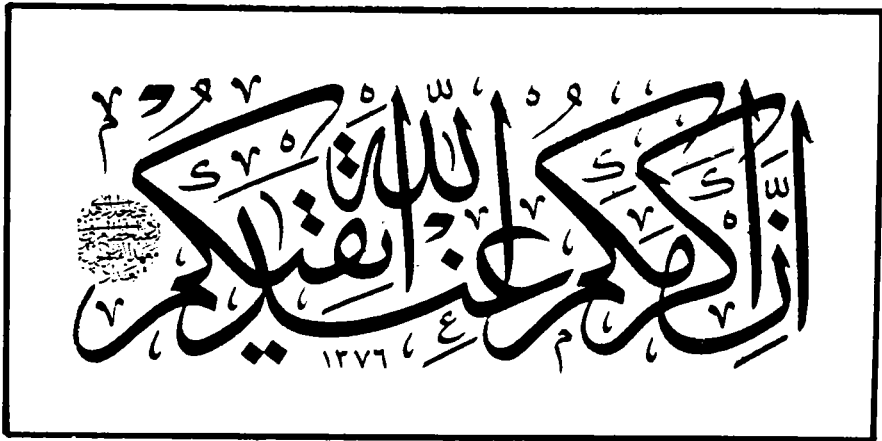 إِنَّ أَكْرَمَكُمْ عِنْدَ اللّٰهِ أَتْقٰيكُمْ
١٣٧٦